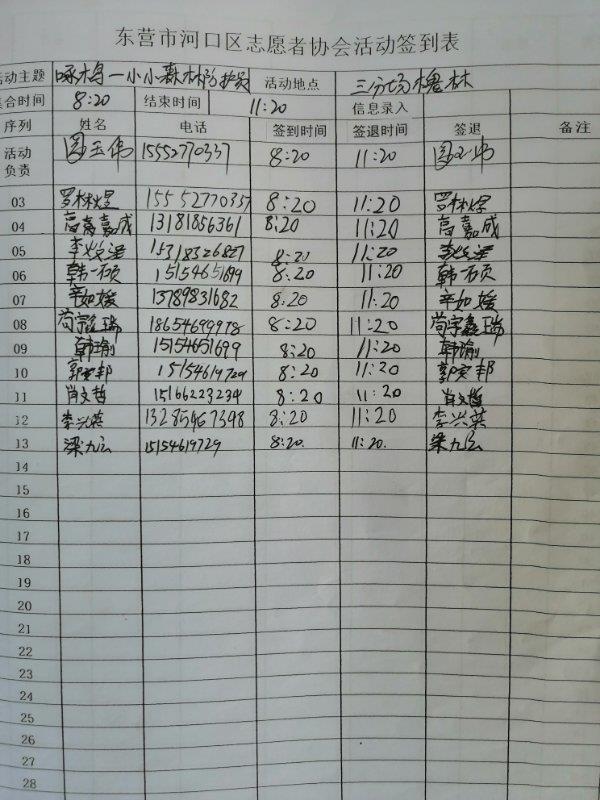 东营市河口区志愿者协会活动签到表
活动主题 啄木鸟—小小森林防护员 活动地点 三分场槐林
集合时间 8:20 结束时间 11:20 信息录入
序列 姓名 电话 签到时间 签退时间 签退 备注
活动负责 玉伟 15552770337 8:20 11:20 伟
03 罗林煜 15552770337 8:20 11:20 罗林煜
04 高嘉成 13181856361 8:20 11:20 高嘉成
05 李 15318326827 8:20 11:20 李
06 韩一硕 15154651699 8:20 11:20 韩一硕
07 辛如媛 13789831682 8:20 11:20 辛如媛
08 荀宇鑫瑞 18654699978 8:20 11:20 荀宇鑫瑞
09 韩瑜 15154651699 8:20 11:20 韩瑜
10 郭安邦 15154619729 8:20 11:20 郭安邦
11 肖文哲 15166223234 8:20 11:20 肖文哲
12 李兴英 13285467398 8:20 11:20 李兴英
13 梁九云 15154619729 8:20. 11:20. 梁九云
14
15
16
17
18
19
20
21
22
23
24
25
26
27
28